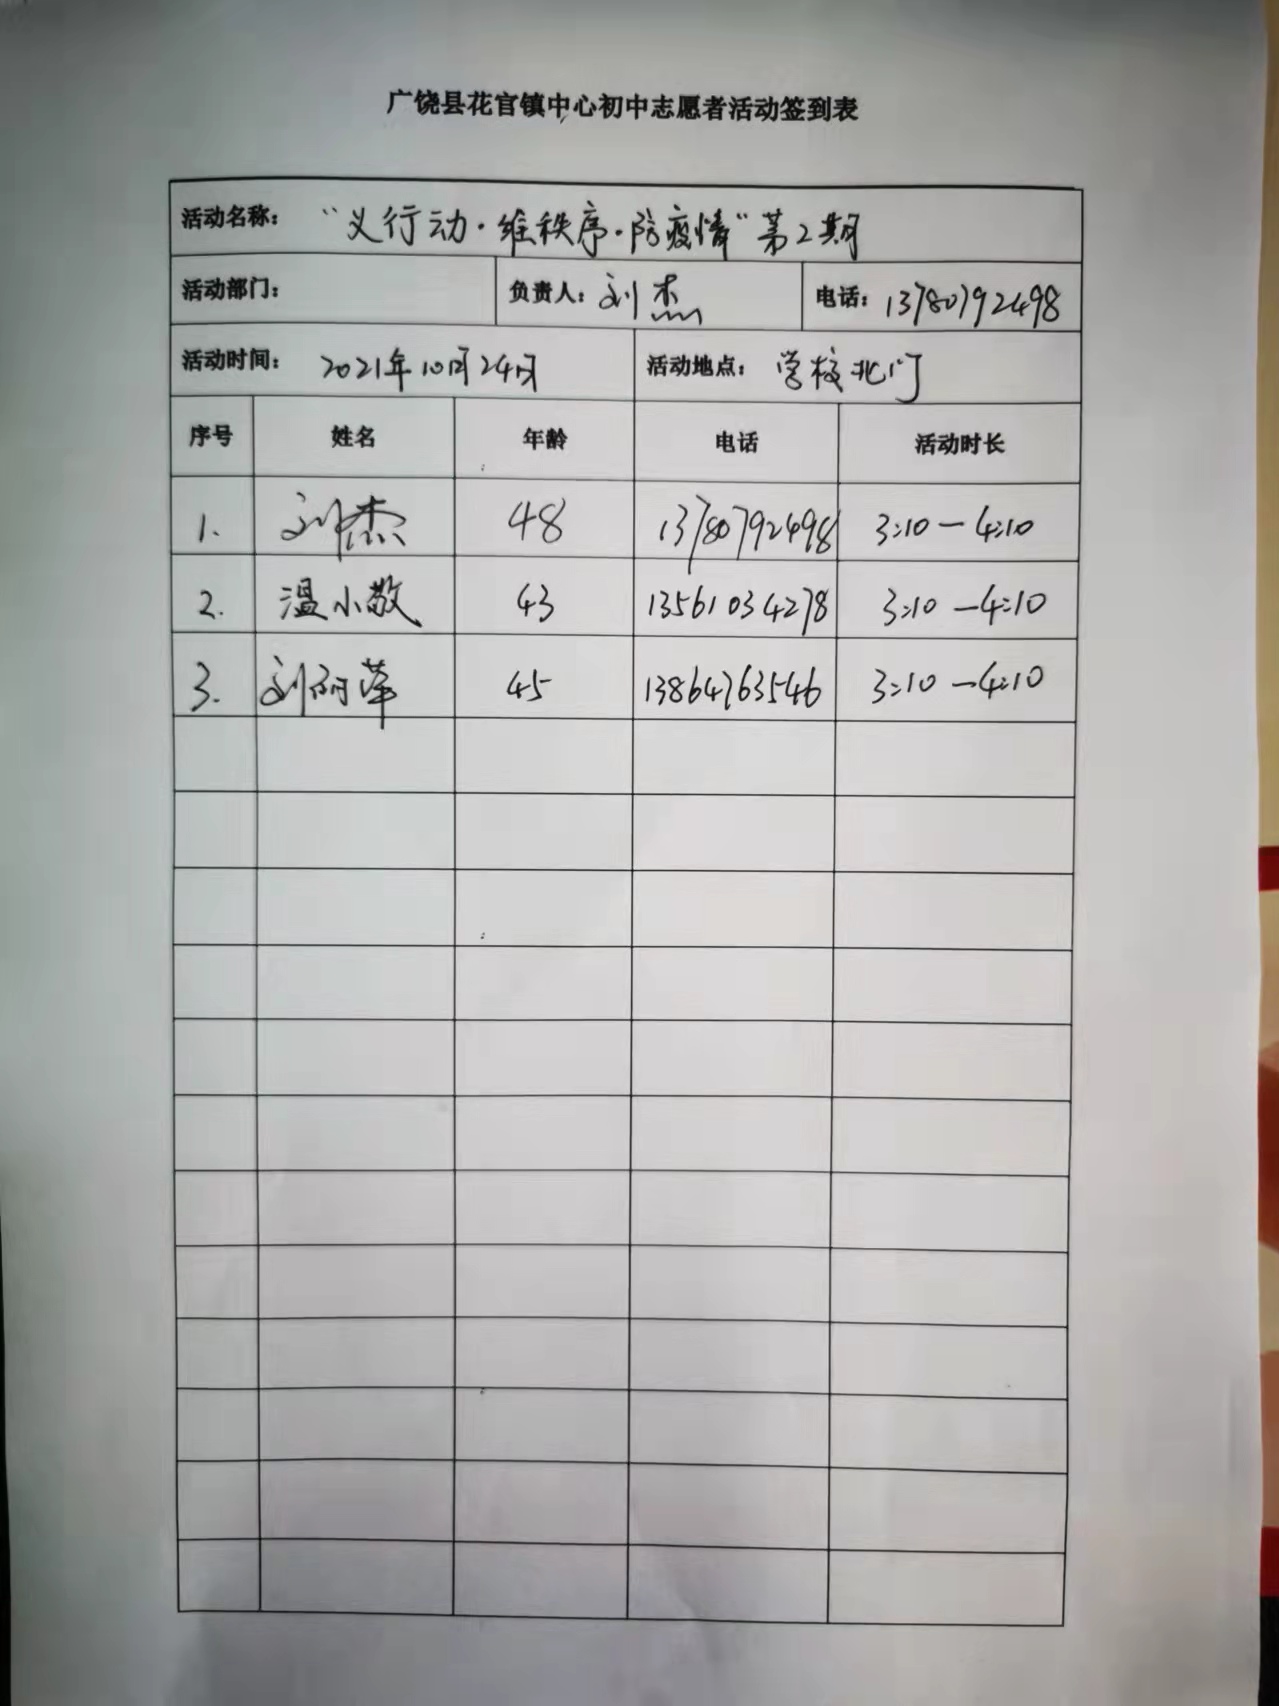 广饶县花官镇中心初中志愿者活动签到表
活动名称： “义行动·维秩序·防疫情”第2期
活动部门： 负责人：刘杰 电话：13780792498
活动时间：2021年10月24日 活动地点：学校北门
序号 姓名 年龄 电话 活动时长
1. 刘杰 48 13780792498 3:10—4:10
2. 温小敬 43 13561034278 3:10—4:10
3. 刘丽萍 45 13864763546 3:10—4:10